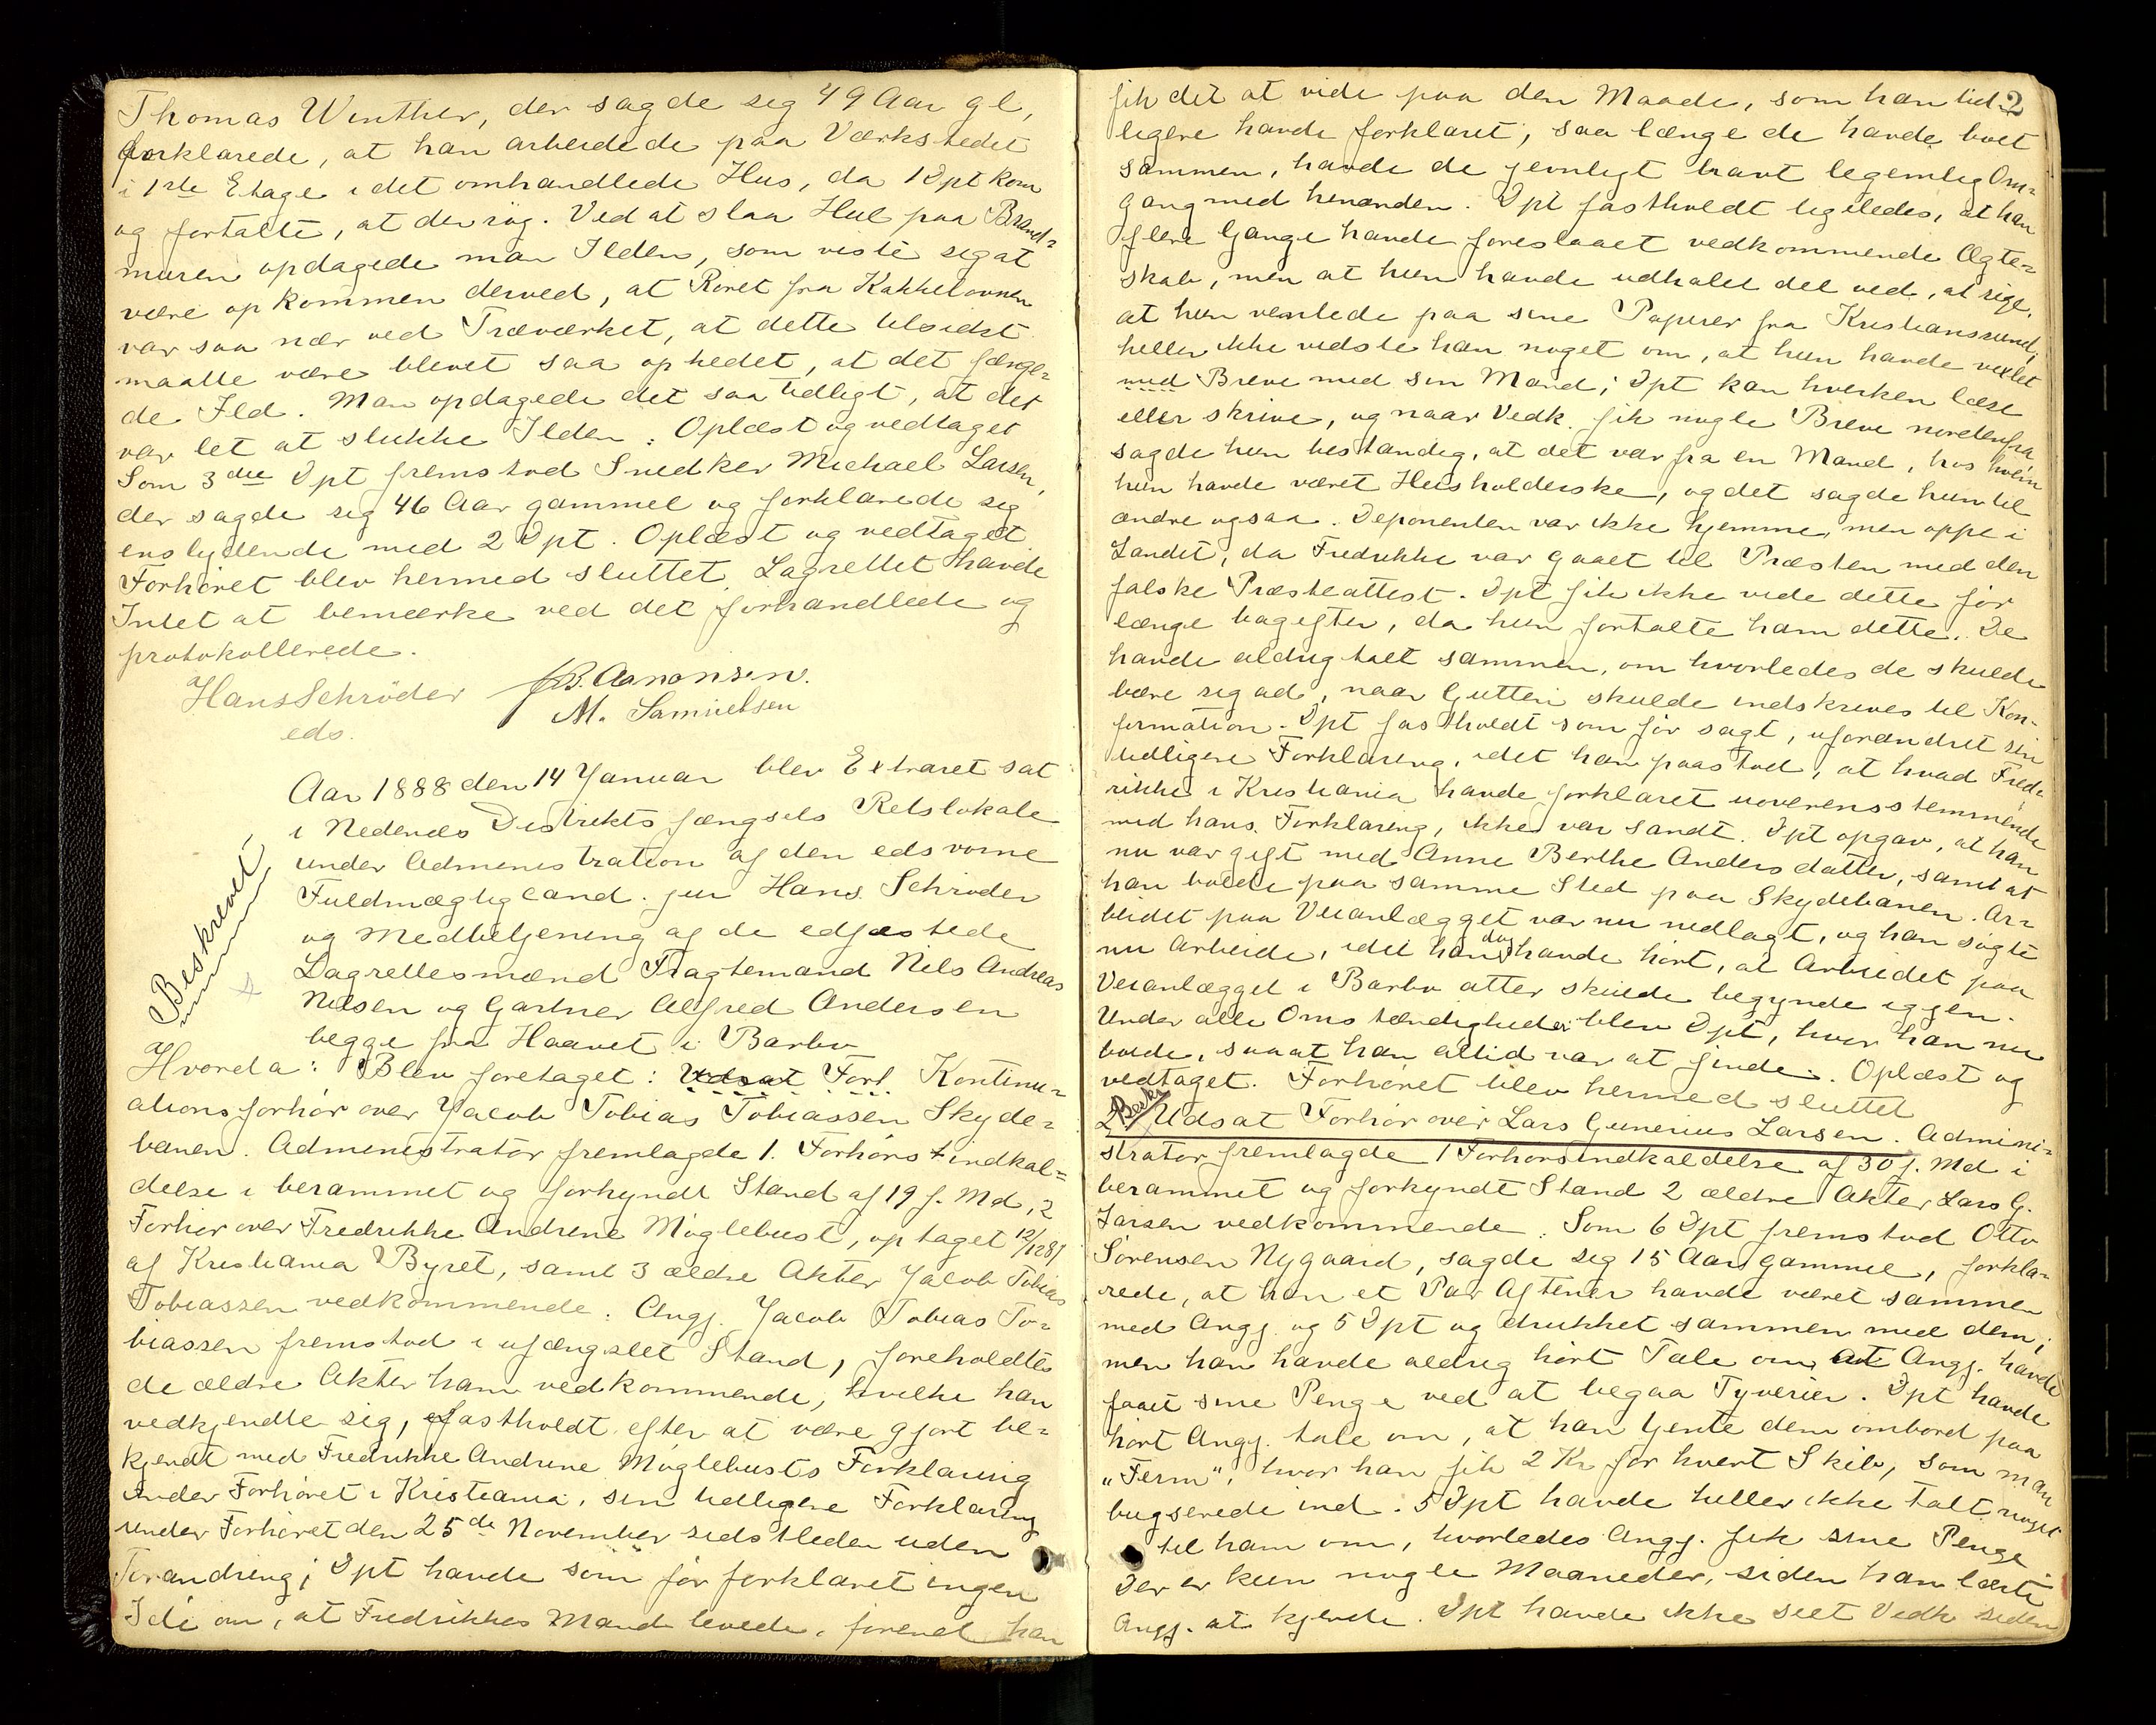 Thomas Winther, der sagde sig 49 Aar gl,
forklarede, at han arbeidede paa Værkstedet
i 1ste Etage i det omhandlede Hus, da 1 Dpt kom
og fortalte, at der røg. Ved at slaa Hul paa Brand-
muren opdagede man Ilden, som viste sig at
være opkommen derved, at Røret fra Kakkelovnen
var saa nær ved Træværket, at dette tilsidst
maatte være blevet saa ophedet, at det fænge-
de Ild. Man opdagede det saa tidligt, at det
var let at slukke Ilden. Oplæst og vedtaget
Som 3die Dpt fremstod Snedker Michael Larsen,
der sagde sig 46 Aar gammel og forklarede sig
enslydende med 2 Dpt. Oplæst og vedtaget
Forhøret blev hermed sluttet. Lagrettet havde
Intet at bemærke ved det forhandlede og
protokollerede.
Hans Schrøder J.B. Aanonsen.
eds. M. Samuelsen
Aar 1888 den 14 Januar blev Extraret sat
i Nedenæs Distrikts fængsels Retslokale
under Administration af den edsvorne
Fuldmægtig cand. jur Hans Schrøder
og Medbetjening af de edfæstede
Lagrettesmænd Fragtemand Nils Andreas
Nilsen og Gartner Alfred Andersen
begge fra Haavet i Barbo
Beskrevet
Hvorda: Blev foretaget: Udsat Fort. Kontinu-
ationsforhør over Jacob Tobias Tobiassen Skyde-
banen. Administrator fremlagde 1. Forhørsindkal-
delse i berammet og forkyndt Stand af 19 f. Md, 2
Forhør over Fredrikke Andrine Møglebust, optaget 12/12 87
af Kristiania Byret, samt 3 ældre Akter Jacob Tobias
Tobiassen vedkommende. Angj. Jacob Tobias To-
biassen fremstod i ufængslet Stand, foreholdtes
de ældre Akter ham vedkommende, hvilke han
vedkjendte sig, fastholdt efter at være gjort be-
kjendt med Fredrikke Andrine Møglebusts Forklaring
under Forhøret i Kristiania, sin tidligere Forklaring
under Forhøret den 25de November sidstleden uden
Forandring; Dpt havde som før forklaret ingen
Idé om, at Fredrikkes Mand levede, førend han
2
fik det at vide paa den Maade, som han tid-
ligere havde forklaret; saa længe de havde boet
sammen, havde de jevnligt havt legemlig Om-
gang med hinanden. Dpt fastholdt ligeledes, at han
flere Gange havde foreslaaet vedkommende Ægte-
skab, men at hun havde udhalet det ved, at sige,
at hun ventede paa sine Papirer fra Kristianssund,
heller ikke vidste han noget om, at hun havde vexlet
med Breve med sin Mand; Dpt kan hverken læse
eller skrive, og naar Vedk. fik nogle Breve nordenfra
sagde hun bestandig, at det var fra en Mand, hos hvem
hun havde været Husholderske, og det sagde hun til
andre ogsaa. Deponenten var ikke hjemme, men oppe i
Landet, da Fredrikke var gaaet til Præsten med den
falske Præsteattest. Dpt fik ikke vide dette før
længe bagefter, da hun fortalte ham dette. De
havde aldrig talt sammen, om hvorledes de skulde
bære sig ad, naar Gutten skulde indskrives til Kon-
firmation. Dpt fastholdt som før sagt, uforandret sin
tidligere Forklaring, idet han paastod, at hvad Fred-
rikke i Kristiania havde forklaret uoverensstemmende
med hans Forklaring, ikke var sandt. Dpt opgav, at han
nu var gift med Anne Berthe Andersdatter, samt at
han boede paa samme Sted paa Skydebanen. Ar-
beidet paa Veianlægget var nu nedlagt, og han søgte
nu Arbeide, idet han dog havde hørt, at Arbeidet paa
Veianlægget i Barbo atter skulde begynde igjen.
Under alle Omstændigheder blev Dpt, hvor han nu
boede, saa at han altid var at finde. Oplæst og
vedtaget. Forhøret blev hermed sluttet
Beskr
2 Udsat Forhør over Lars Gunerius Larsen. Admini-
strator fremlagde 1 Forhørsindkaldelse af 30 f. Md i
berammet og forkyndt Stand 2 ældre Akter Lars G.
Larsen vedkommende. Som 6 Dpt fremstod Otto
Sørensen Nygaard, sagde sig 15 Aar gammel, forkla-
rede, at han et Par Aftener havde været sammen
med Angj. og 5 Dpt og drukket sammen med dem;
men han havde aldrig hørt Tale om at Angj. havde
faaet sine Penge ved at begaa Tyverier. Dpt havde
hørt Angj. tale om, at han tjente dem ombord paa
„Ferm", hvor han fik 2 Kr for hvert Skib, som man
bugserede ind. 5 Dpt havde heller ikke talt noget
til ham om, hvorledes Angj. fik sine Penge
Der er kun nogle Maaneder, siden han lærte
Angj. at kjende. Dpt havde ikke seet Vedk siden